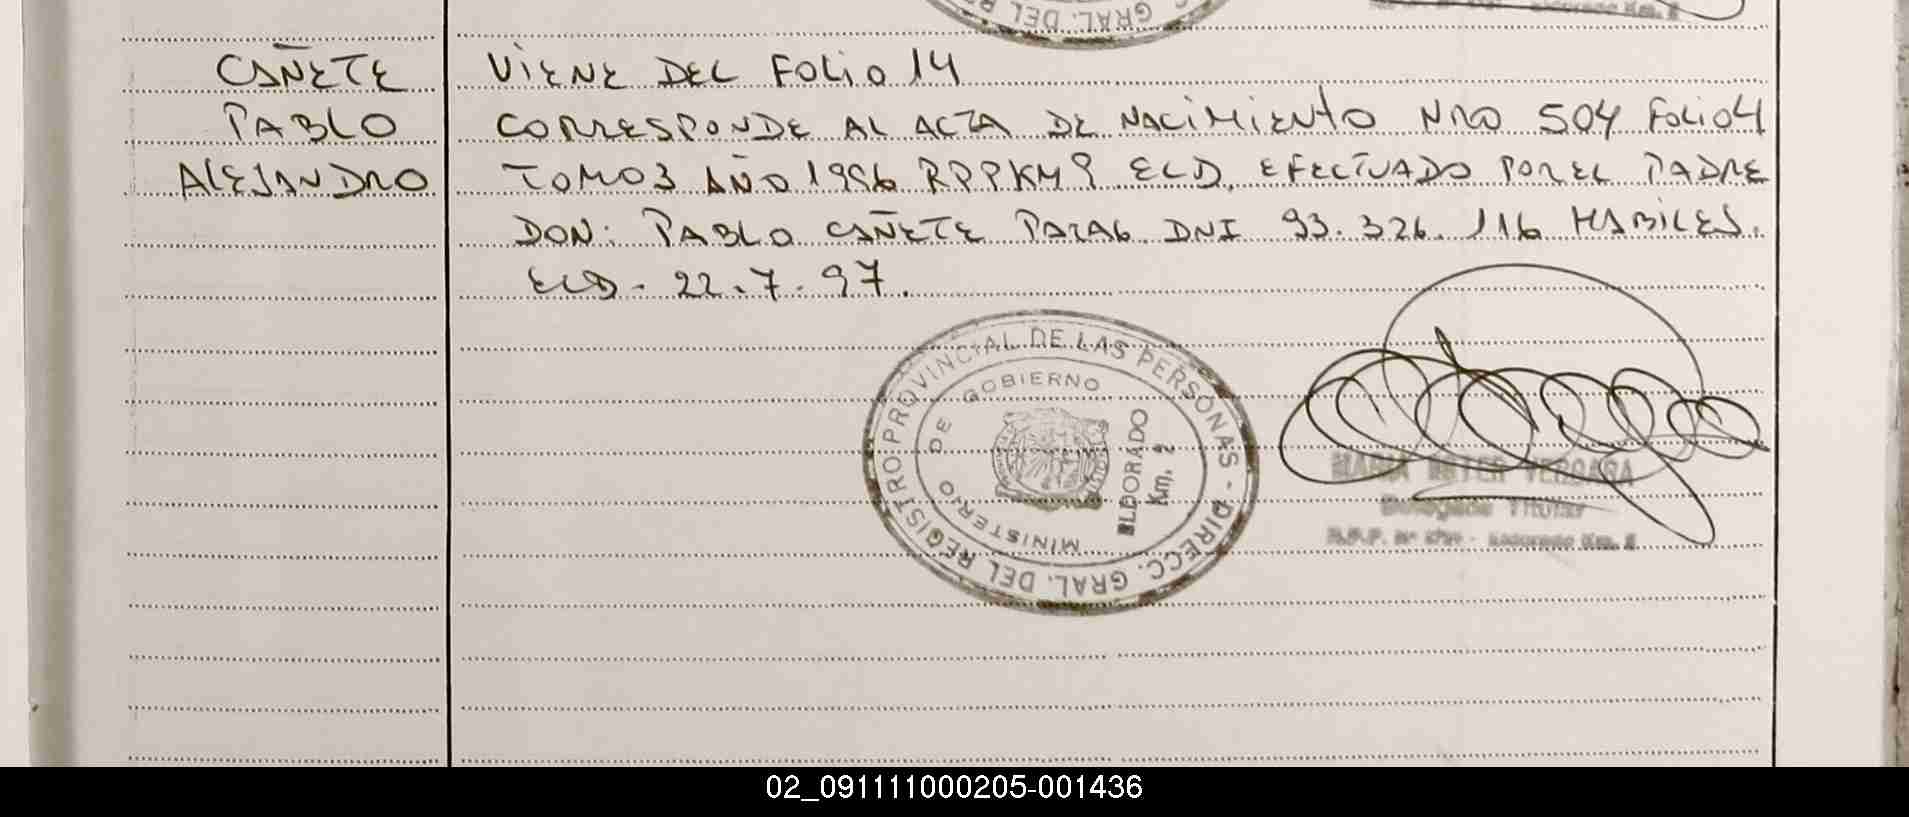 GRAL. DEL R
CAÑETE
PABLO
ALEJANDRO
VIENE DEL FOLIO 14
CORRESPONDE AL ACTA DE NACIMIENTO NRO 504 FOLIO 4
TOMO 3 AÑO 1996 RPPKM9 ELD. EFECTUADO POR EL PADRE
DON: PABLO CAÑETE PARAG. DNI 93.326.116 HABILES.
ELD. 22.7.97.
REGISTRO PROVINCIAL DE LAS PERSONAS - DIRECC. GRAL. DEL
MINISTERIO DE GOBIERNO
ELDORADO
Km. 2
MARIA ESTER VERGARA
Delegada Titular
R.P.P. Nº - Eldorado Km. 2
02_091111000205-001436